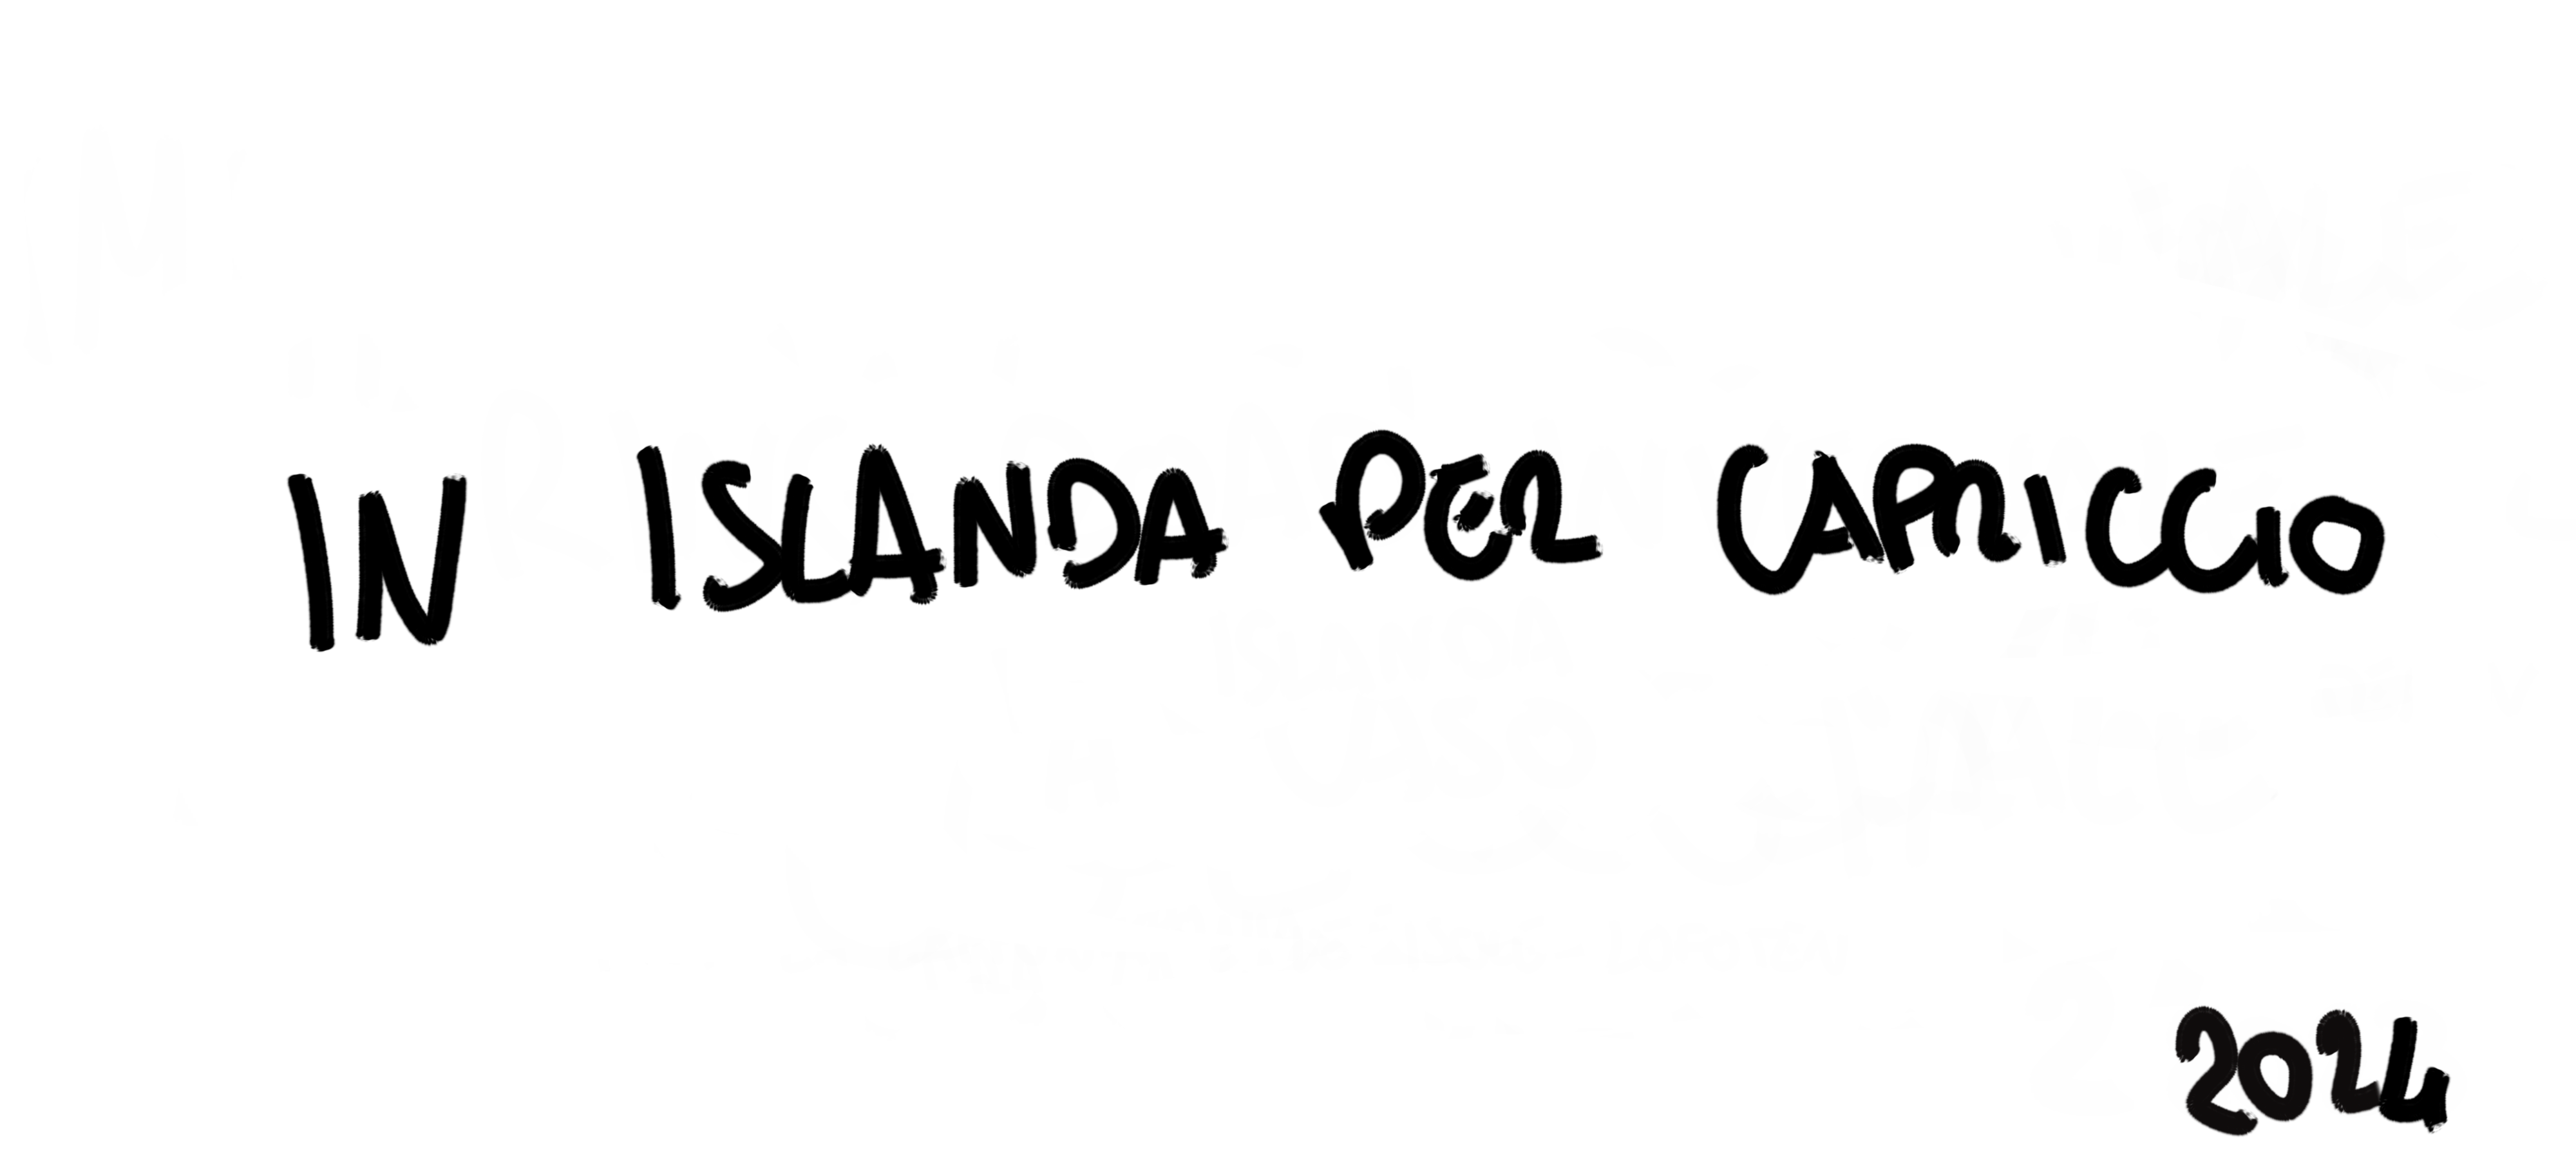 IN ISLANDA PER CAPRICCIO
2024